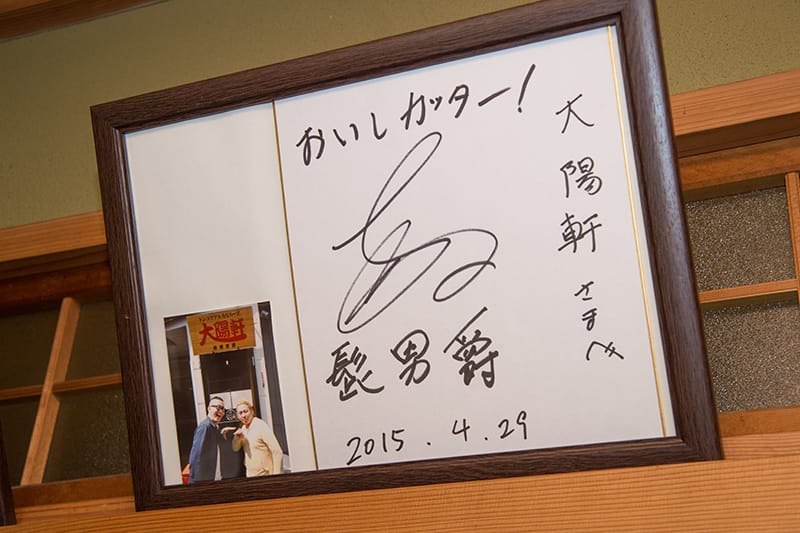 大陽軒さまへ
おいしカッター!
髭男爵
2015.4.29
大陽軒